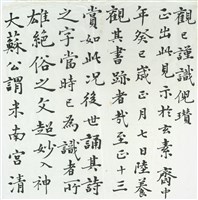 大蘇公謂米南宮清
雄絕俗之文超妙入神
之字當時已為識者所
賞如此況後世誦其詩
觀其書跡者哉至正十三
年癸巳歲正月七日陸養
正出此見示於玄素齋中
觀已謹識倪瓚